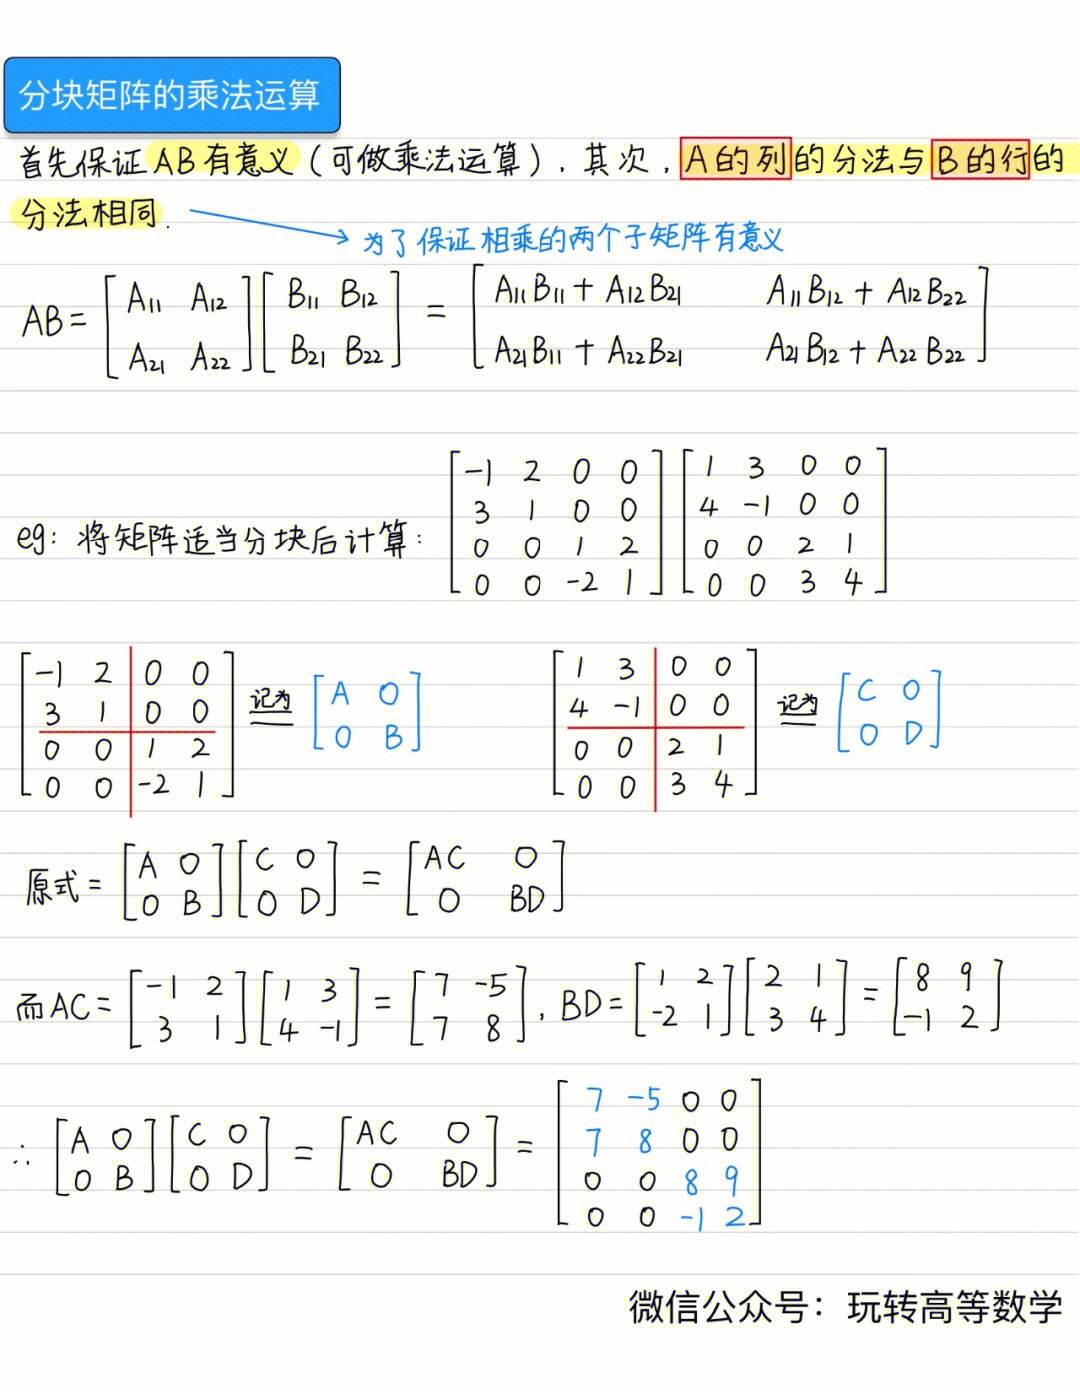 分块矩阵的乘法运算
首先保证AB有意义(可做乘法运算).其次,A的列的分法与B的行的
分法相同.
为了保证相乘的两个子矩阵有意义
AB = [A₁₁ A₁₂; A₂₁ A₂₂] [B₁₁ B₁₂; B₂₁ B₂₂] = [A₁₁B₁₁ + A₁₂B₂₁ A₁₁B₁₂ + A₁₂B₂₂; A₂₁B₁₁ + A₂₂B₂₁ A₂₁B₁₂ + A₂₂B₂₂]
eg: 将矩阵适当分块后计算: [-1 2 0 0; 3 1 0 0; 0 0 1 2; 0 0 -2 1] [1 3 0 0; 4 -1 0 0; 0 0 2 1; 0 0 3 4]
[-1 2 0 0; 3 1 0 0; 0 0 1 2; 0 0 -2 1] 记为 [A O; O B] [1 3 0 0; 4 -1 0 0; 0 0 2 1; 0 0 3 4] 记为 [C O; O D]
原式 = [A O; O B] [C O; O D] = [AC O; O BD]
而 AC = [-1 2; 3 1] [1 3; 4 -1] = [7 -5; 7 8], BD = [1 2; -2 1] [2 1; 3 4] = [8 9; -1 2]
∴ [A O; O B] [C O; O D] = [AC O; O BD] = [7 -5 0 0; 7 8 0 0; 0 0 8 9; 0 0 -1 2]
微信公众号：玩转高等数学